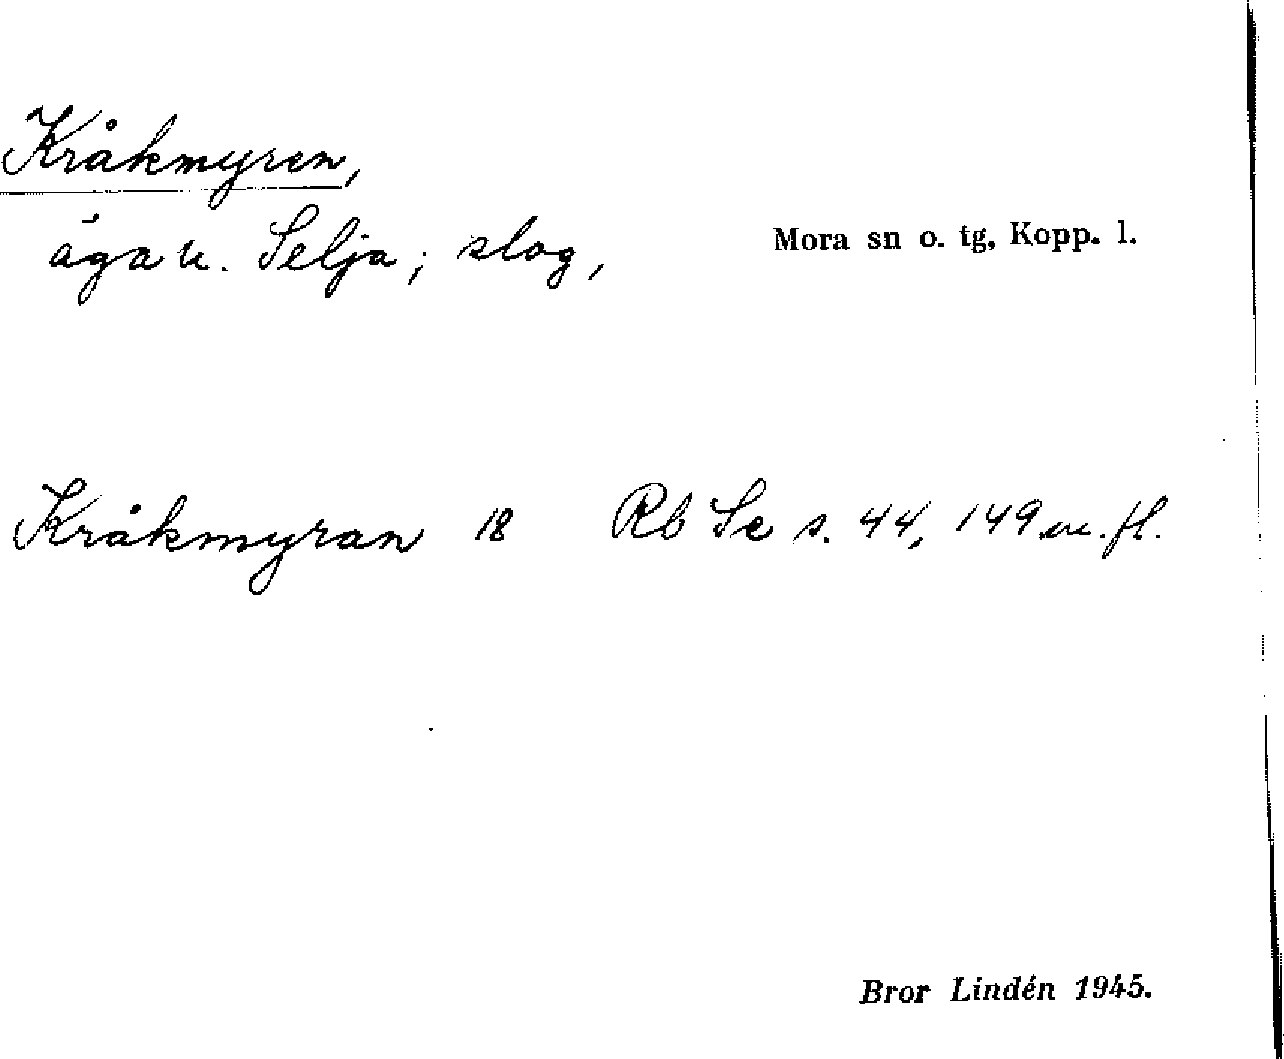 Kråkmyren,
äga u. Selja; slog,
Mora sn o. tg, Kopp. l.
Kråkmyran 18 Rb Se s. 44, 149 m. fl.
Bror Lindén 1945.